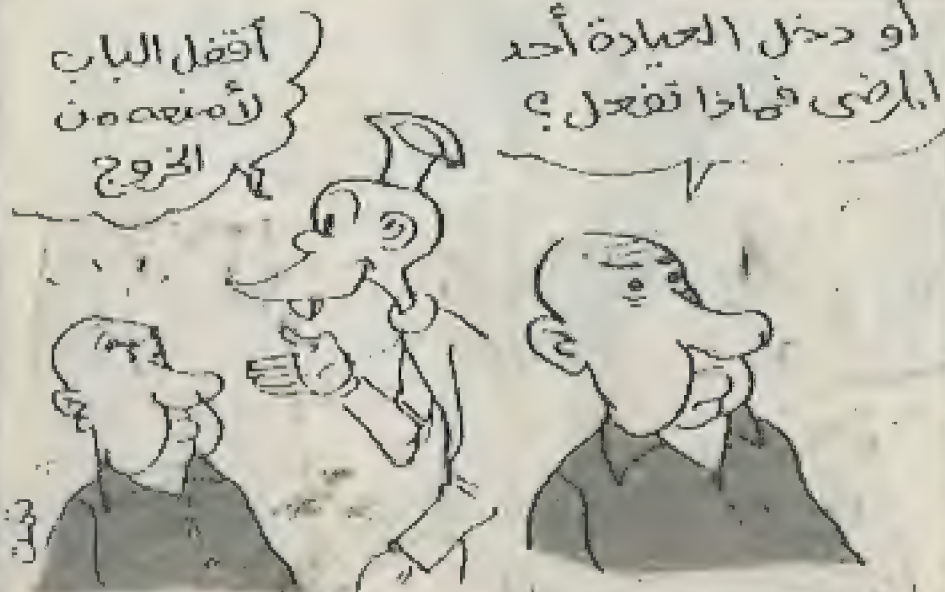 لو دخل العيادة أحد
المرضى فماذا تفعل؟
أقفل الباب
لأمنعه من
الخروج